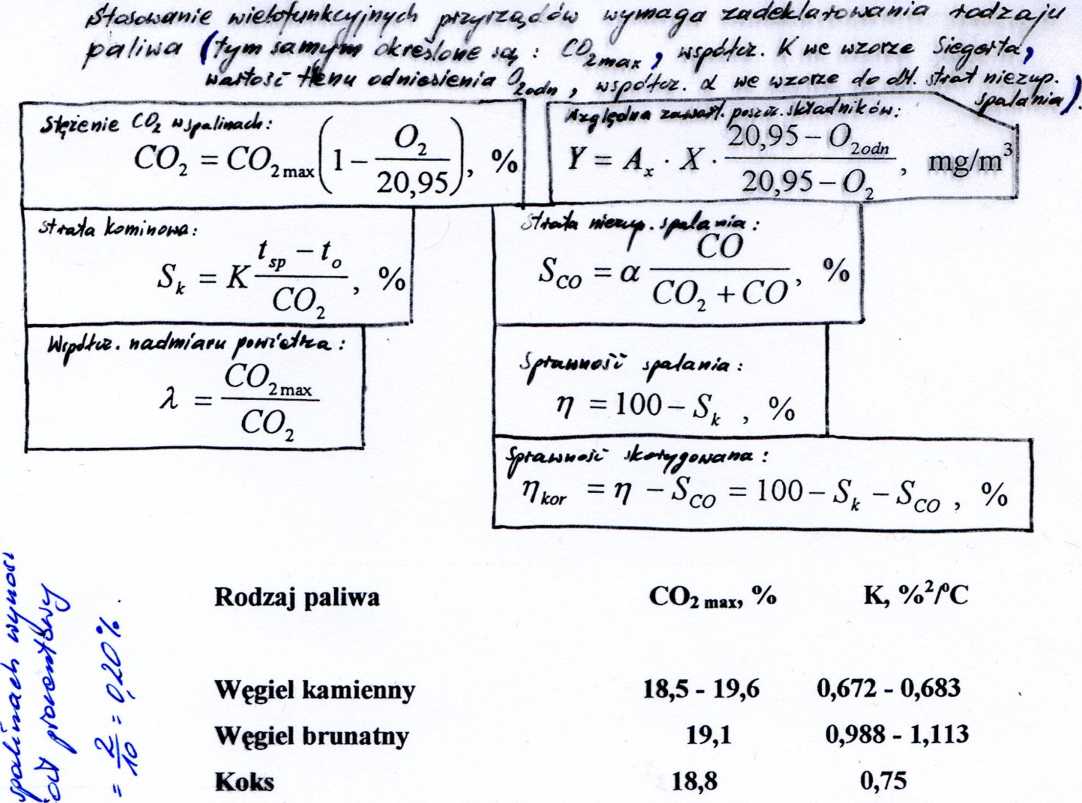 Stosowanie wielofunkcyjnych przyrządów wymaga zadeklarowania rodzaju
paliwa (tym samym określone są : CO₂max, współcz. K we wzorze Siegerta,
wartość tlenu odniesienia O₂odn, współcz. α we wzorze do obl. strat niezup.
spalania).
Stężenie CO₂ w spalinach:
CO₂ = CO₂max (1 − O₂ / 20,95), %
Względna zawart. poszcz. składników:
Y = Aₓ · X · (20,95 − O₂odn) / (20,95 − O₂), mg/m³
Strata kominowa:
Sₖ = K (t_sp − t_o) / CO₂, %
Strata niezup. spalania:
S_CO = α CO / (CO₂ + CO), %
Współcz. nadmiaru powietrza:
λ = CO₂max / CO₂
Sprawność spalania:
η = 100 − Sₖ , %
Sprawność skorygowana:
η_kor = η − S_CO = 100 − Sₖ − S_CO , %
Rodzaj paliwa CO₂ max, % K, %²/°C
Węgiel kamienny 18,5 - 19,6 0,672 - 0,683
Węgiel brunatny 19,1 0,988 - 1,113
Koks 18,8 0,75
spalinach wynosi
procentowy
= 2/10 = 0,20%.